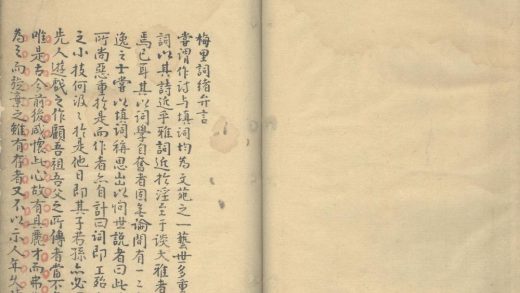 梅里詞緒弁言
嘗謂作詩与填詞均為文苑之一藝世多重
詞以其詩近乎雅詞近於淫至于談大雅者
焉已耳其以詞學自奮者固無論間有一二
逸之士嘗以填詞稱思出以问世說者曰此
所尚惡重於是而作者亦自計曰詞即工殆
之小技何汲々於是他日即其子若孫亦必
先人遊戲之作顧吾祖吾父之所傳者當不
唯是古今前後咸懷此心故有具麗才而弗
為之而旋棄之雖有存者又不以示人年久